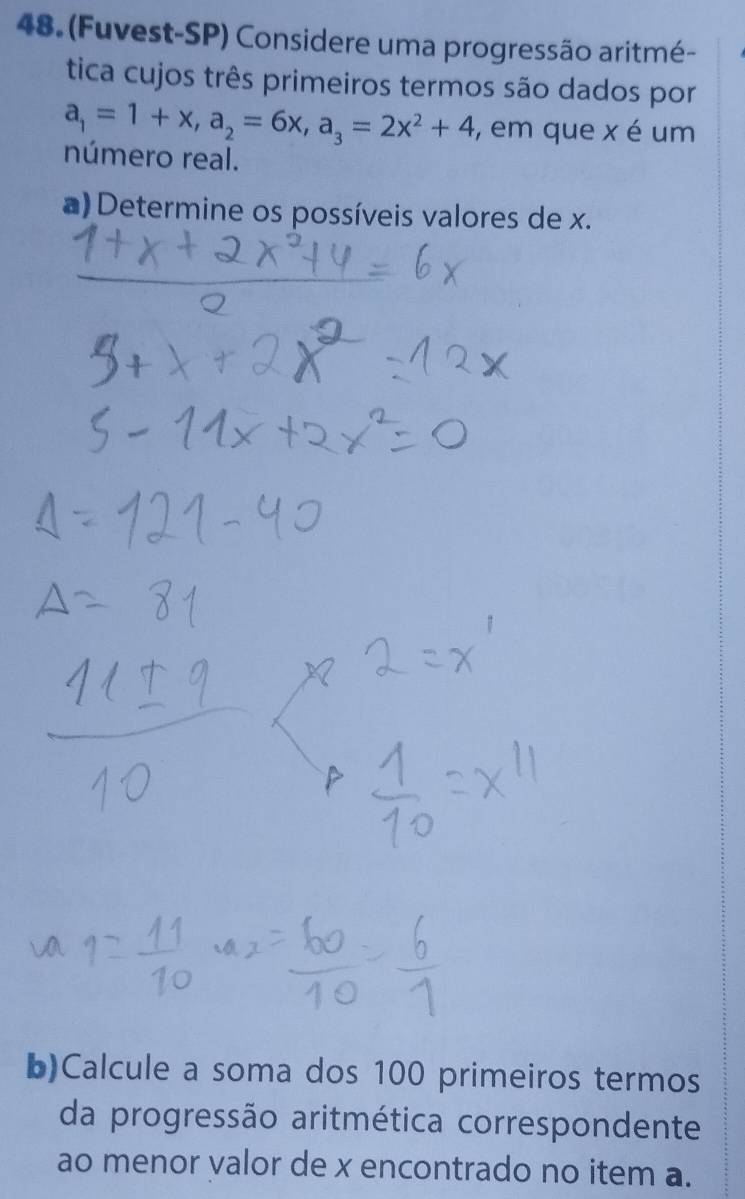 48. (Fuvest-SP) Considere uma progressão aritmé-
tica cujos três primeiros termos são dados por
a₁ = 1 + x, a₂ = 6x, a₃ = 2x² + 4, em que x é um
número real.
a) Determine os possíveis valores de x.
1+x+2x²+4/2 = 6x
5+x+2x² = 12x
5-11x+2x²=0
Δ=121-40
Δ= 81
11±9/10
2=x'
1/10=x''
a1=11/10 a2=60/10=6/1
b) Calcule a soma dos 100 primeiros termos
da progressão aritmética correspondente
ao menor valor de x encontrado no item a.